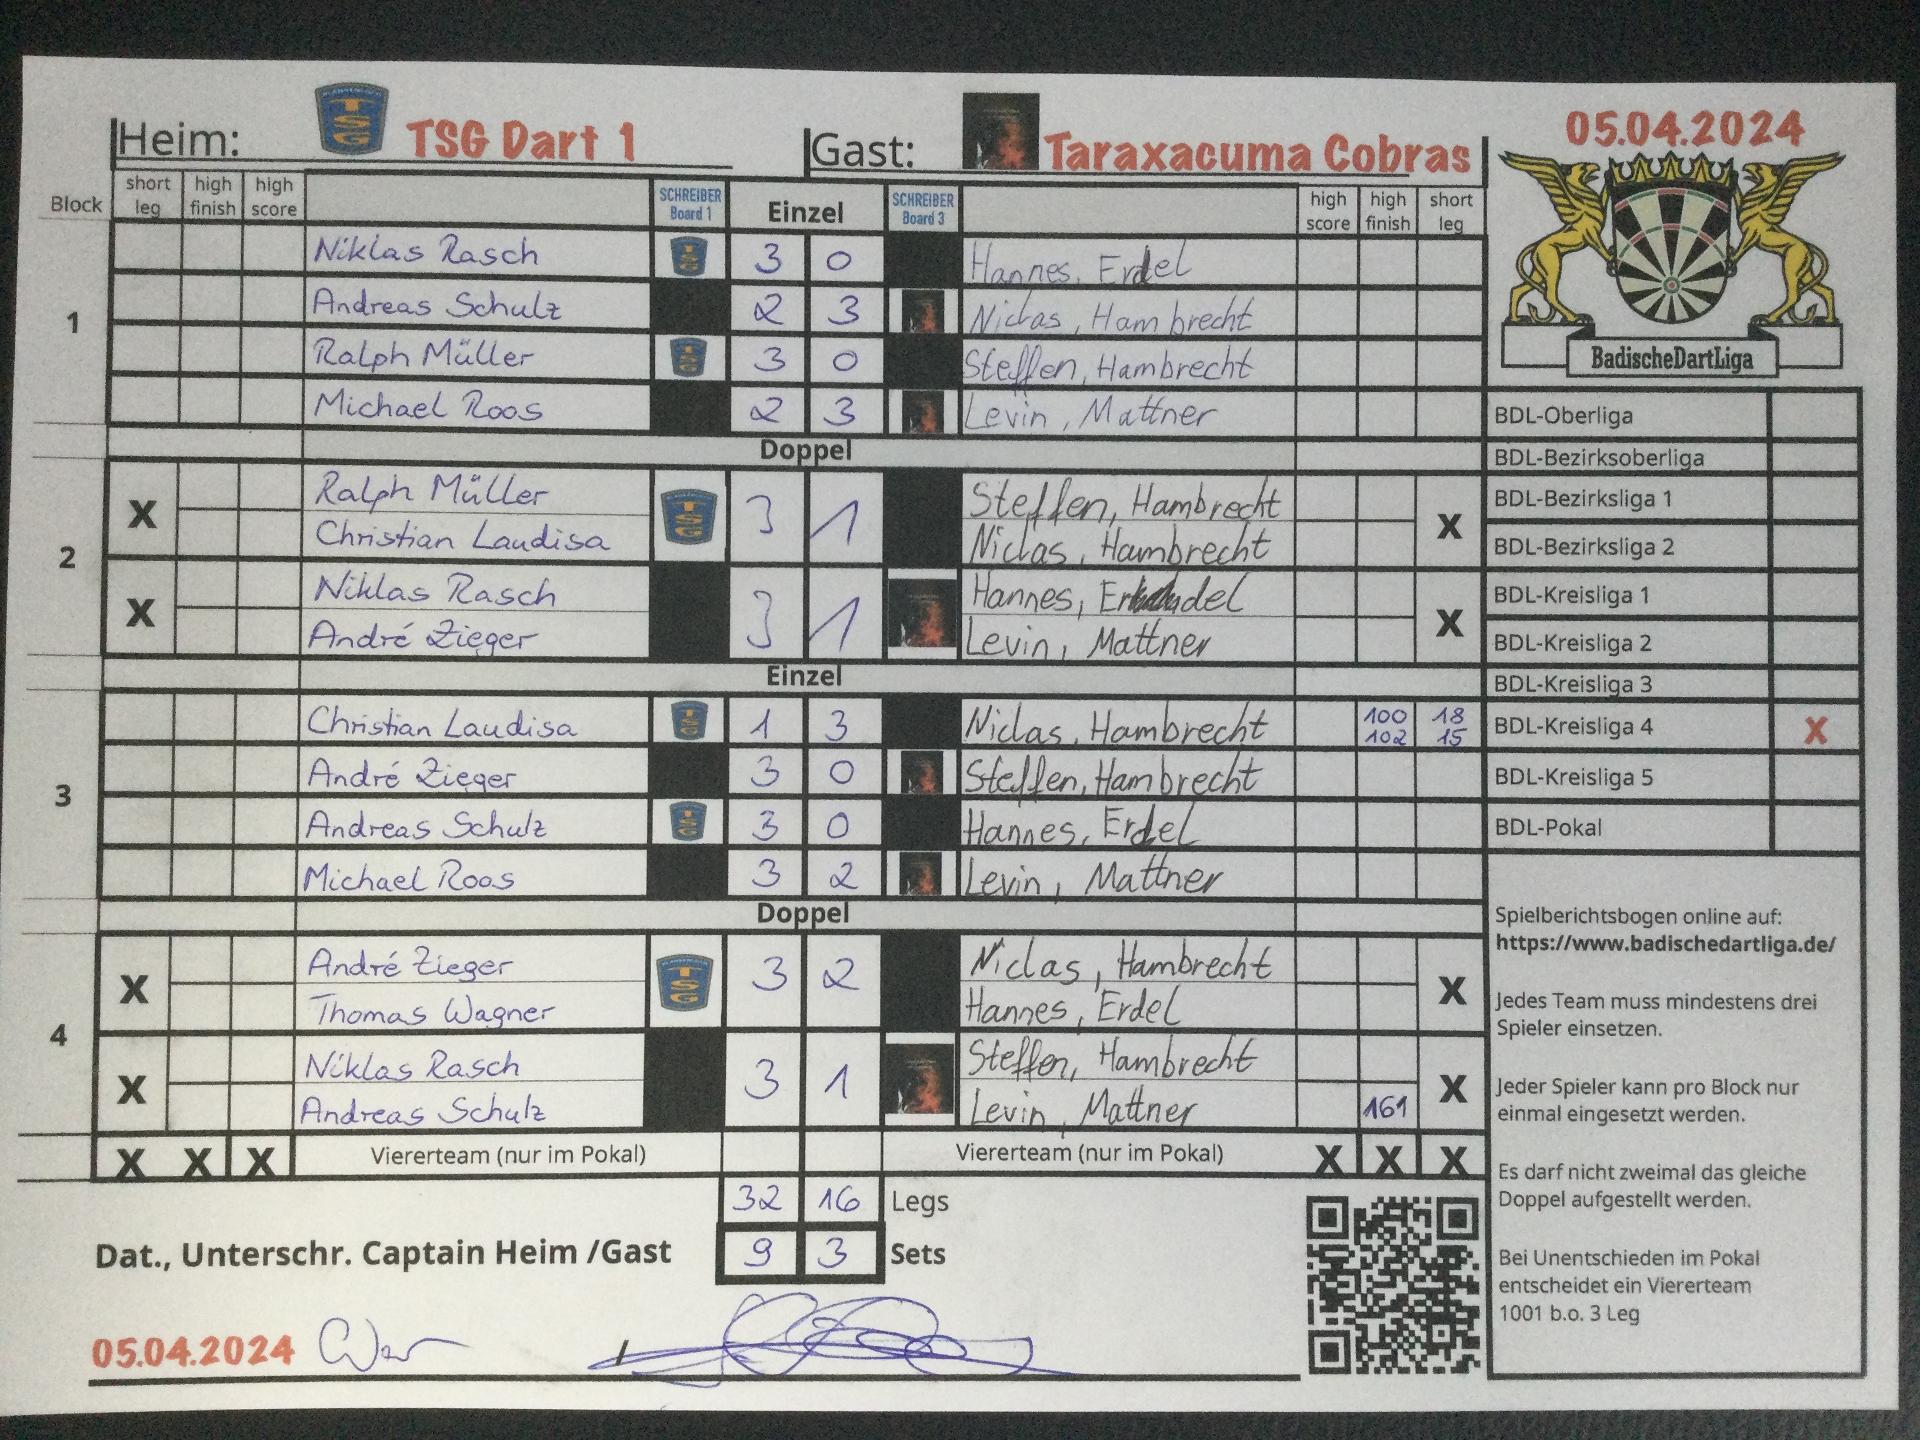 Heim: TSG TSG Dart 1 Gast: Taraxacuma Cobras 05.04.2024
Block short leg high finish high score SCHREIBER Board 1 Einzel SCHREIBER Board 3 high score high finish short leg
1
Niklas Rasch TSG 3 0 Hannes, Erdel
Andreas Schulz 2 3 Niclas, Hambrecht
Ralph Müller TSG 3 0 Steffen, Hambrecht
Michael Roos 2 3 Levin, Mattner
Doppel
2
X Ralph Müller TSG 3 1 Steffen, Hambrecht X
Christian Laudisa Niclas, Hambrecht
X Niklas Rasch 3 1 Hannes, Erdel X
André Zieger Levin, Mattner
Einzel
3
Christian Laudisa TSG 1 3 Niclas, Hambrecht 100 18
102 15
André Zieger 3 0 Steffen, Hambrecht
Andreas Schulz TSG 3 0 Hannes, Erdel
Michael Roos 3 2 Levin, Mattner
Doppel
4
X André Zieger TSG 3 2 Niclas, Hambrecht X
Thomas Wagner Hannes, Erdel
X Niklas Rasch 3 1 Steffen, Hambrecht X
Andreas Schulz Levin, Mattner 161
X X X Viererteam (nur im Pokal) Viererteam (nur im Pokal) X X X
32 16 Legs
Dat., Unterschr. Captain Heim /Gast 9 3 Sets
05.04.2024 /
BadischeDartLiga
BDL-Oberliga
BDL-Bezirksoberliga
BDL-Bezirksliga 1
BDL-Bezirksliga 2
BDL-Kreisliga 1
BDL-Kreisliga 2
BDL-Kreisliga 3
BDL-Kreisliga 4 X
BDL-Kreisliga 5
BDL-Pokal
Spielberichtsbogen online auf:
https://www.badischedartliga.de/
Jedes Team muss mindestens drei
Spieler einsetzen.
Jeder Spieler kann pro Block nur
einmal eingesetzt werden.
Es darf nicht zweimal das gleiche
Doppel aufgestellt werden.
Bei Unentschieden im Pokal
entscheidet ein Viererteam
1001 b.o. 3 Leg